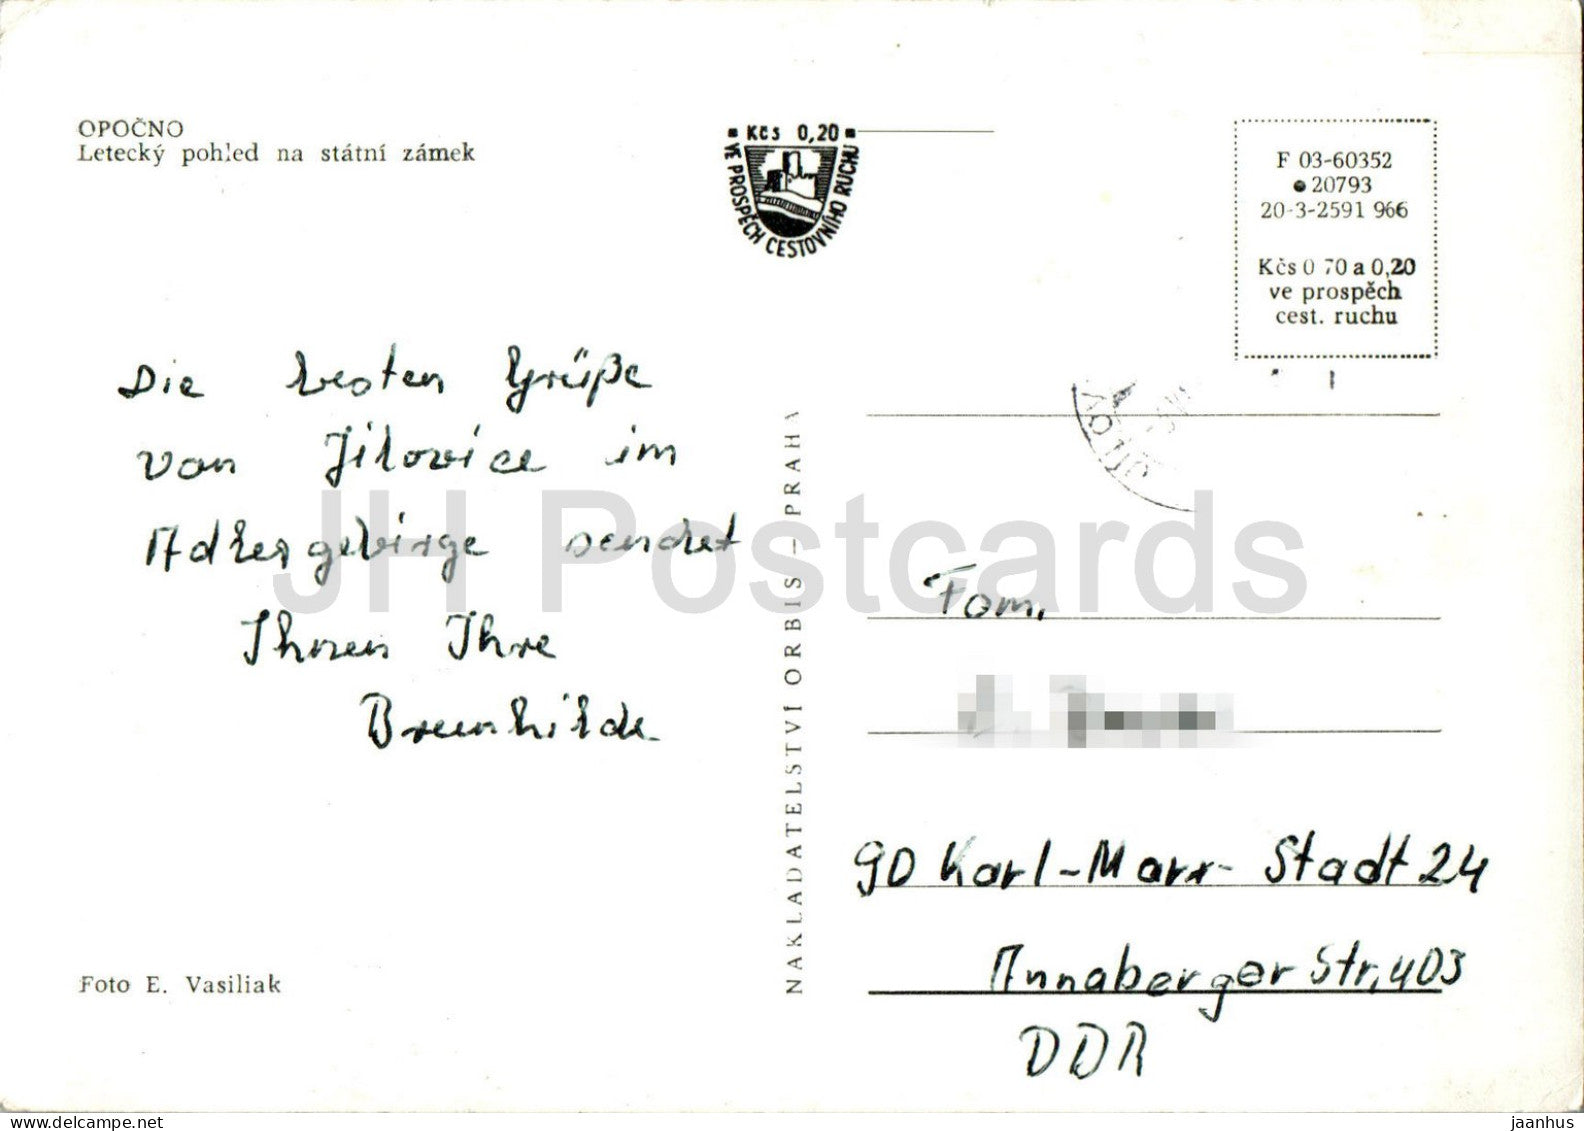 OPOČNO
Letecký pohled na státní zámek
Kčs 0,20
VE PROSPĚCH CESTOVNÍHO RUCHU
F 03-60352
20793
20-3-2591 966
Kčs 0 70 a 0,20
ve prospěch
cest. ruchu
Die besten Grüße
von Jilovice im
Adlergebirge sendet
Ihnen Ihre
Brunhilde
NAKLADATELSTVÍ ORBIS — PRAHA
Fam.
90 Karl-Marx-Stadt 24
Annaberger Str. 403
DDR
Foto E. Vasiliak
JH Postcards
jaanhus